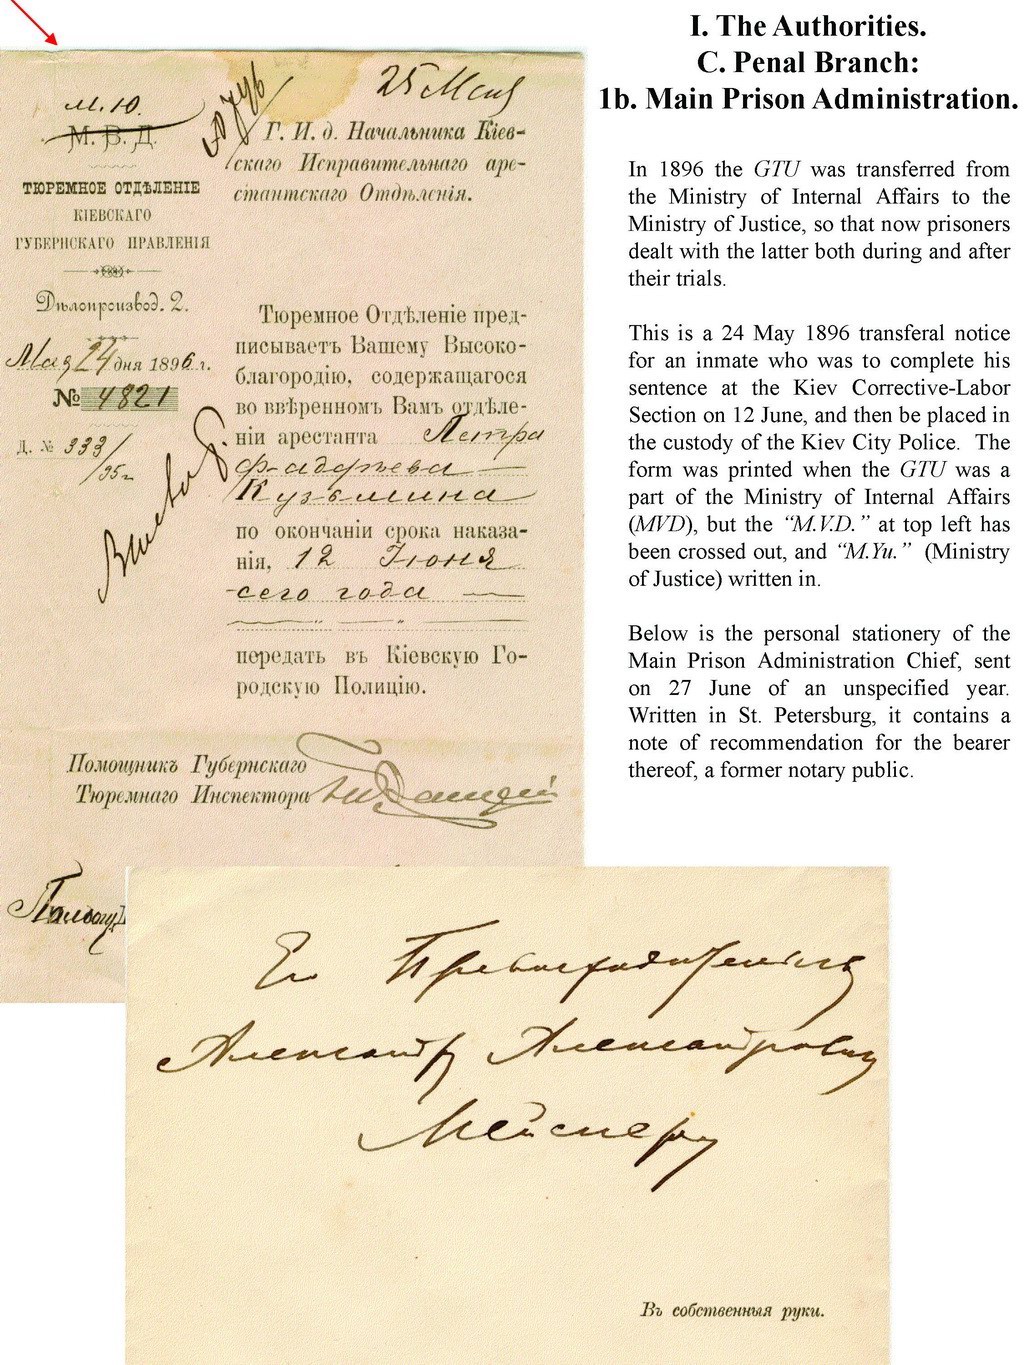 I. The Authorities.
C. Penal Branch:
1b. Main Prison Administration.
In 1896 the GTU was transferred from
the Ministry of Internal Affairs to the
Ministry of Justice, so that now prisoners
dealt with the latter both during and after
their trials.
This is a 24 May 1896 transferal notice
for an inmate who was to complete his
sentence at the Kiev Corrective-Labor
Section on 12 June, and then be placed in
the custody of the Kiev City Police. The
form was printed when the GTU was a
part of the Ministry of Internal Affairs
(MVD), but the “M.V.D.” at top left has
been crossed out, and “M.Yu.” (Ministry
of Justice) written in.
Below is the personal stationery of the
Main Prison Administration Chief, sent
on 27 June of an unspecified year.
Written in St. Petersburg, it contains a
note of recommendation for the bearer
thereof, a former notary public.
М. Ю.
М. В. Д.
ТЮРЕМНОЕ ОТДѢЛЕНІЕ
КІЕВСКАГО
ГУБЕРНСКАГО ПРАВЛЕНІЯ
Дѣлопроизвод. 2.
Мая 24 дня 1896 г.
№ 4821
Д. № 333/95 г.
25 Мая
Г. И. д. Начальника Кіев-
скаго Исправительнаго аре-
стантскаго Отдѣленія.
Тюремное Отдѣленіе пред-
писываетъ Вашему Высоко-
благородію, содержащагося
во ввѣренномъ Вамъ отдѣле-
ніи арестанта Петра
Фаддѣева
Кузьмина
по окончаніи срока наказа-
нія, 12 Іюня
сего года
передать въ Кіевскую Го-
родскую Полицію.
Помощникъ Губернскаго
Тюремнаго Инспектора
Его Превосходительству
Александру Александровичу
Мейснеру
Въ собственныя руки.